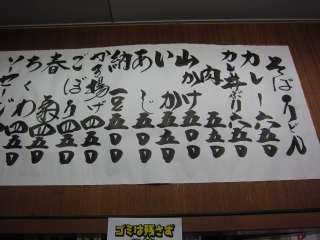 そば・うどん
カレー 六五〇
カレー丼ぶり 六五〇
肉 五五〇
山かけ 五五〇
いか 五〇〇
あじ 五〇〇
納豆 五〇〇
かき揚げ 四五〇
ごぼう 四五〇
春菊 四五〇
ちくわ 四五〇
ソーセージ 四五〇
ゴミは残さず